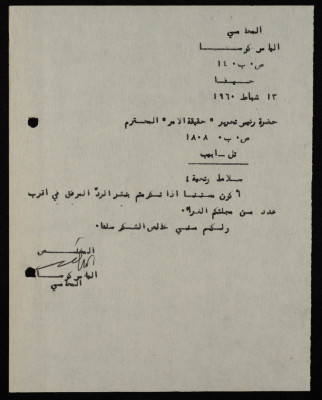 المحامي
الياس كوسا
ص٠ب٠ ١٤٠
حيفا
١٣ شباط ١٩٦٠
حضرة رئيس تحرير "حقيقة الامر" المحترم
ص٠ب٠ ١٨٠٨
تل-ابيب
سلاما وتحية ،
اكون ممتنا اذا تكرمتم بنشر الرد المرفق في اقرب
عدد من مجلتكم الغراء٠
ولكم مني خالص الشكر سلفا٠
المخلص
الياس كوسا
المحامي